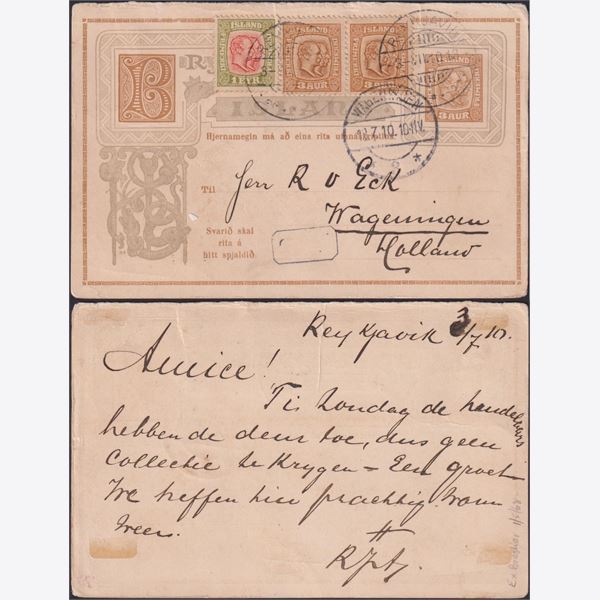 ÍSLAND
1 EYR
ÍSLAND
3 AUR
ÍSLAND
3 AUR
3 AUR
Hjernamegin má að eins rita
WAGENINGEN
10-11V.
Til
Herr R v Eck
Wageningen
Holland
Svarið skal
rita á
hitt spjaldið.
Reykjavik 3/7 10.
Amice!
Tis Zondag de handelaars
hebben de deur toe, dus geen
collectie te krygen = Een groet
We treffen hier prachtig warm
weer.